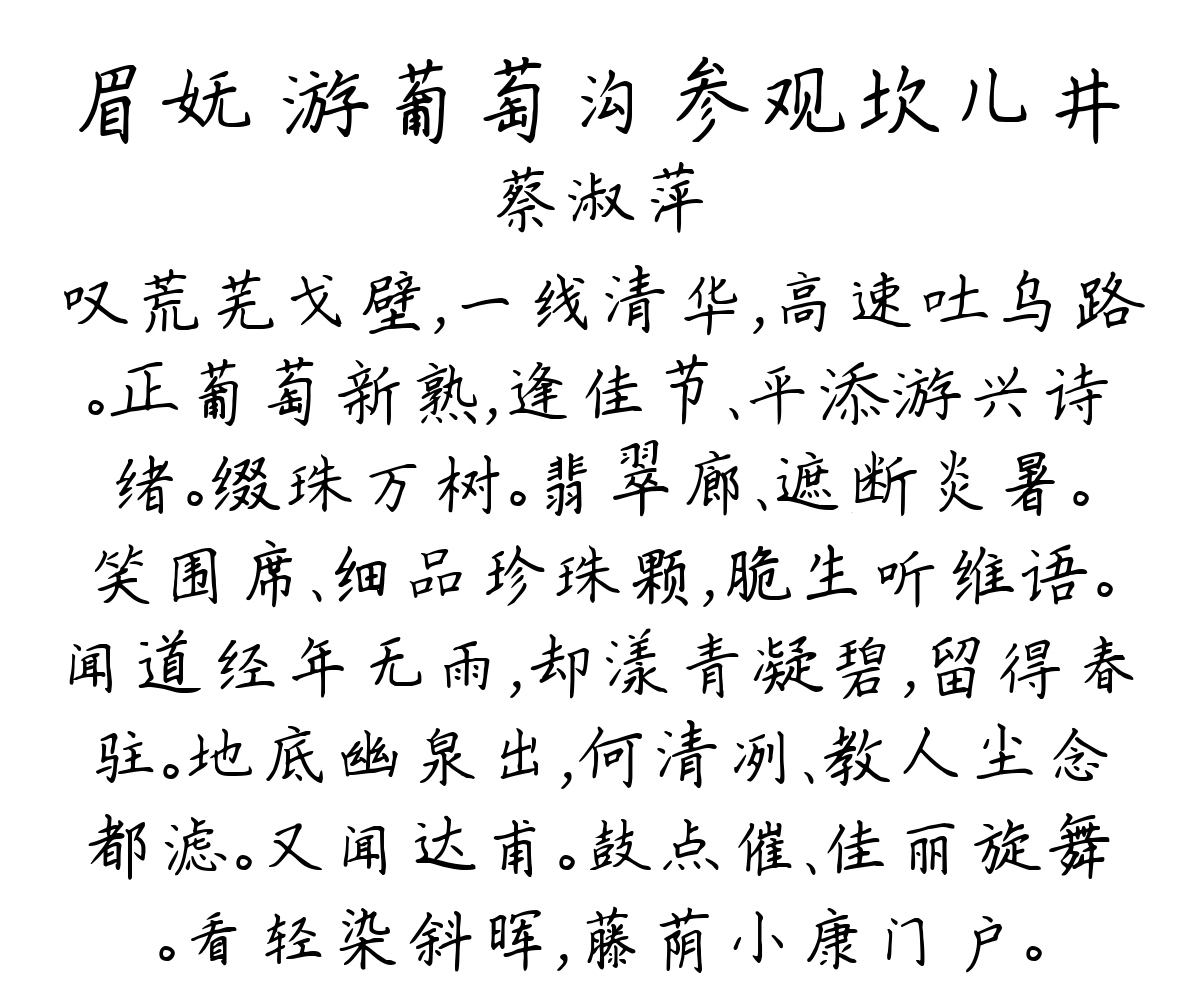 眉妩游葡萄沟参观坎儿井
蔡淑萍
叹荒芜戈壁,一线清华,高速吐乌路
。正葡萄新熟,逢佳节、平添游兴诗
绪。缀珠万树。翡翠廊、遮断炎暑。
笑围席、细品珍珠颗,脆生听维语。
闻道经年无雨,却漾青凝碧,留得春
驻。地底幽泉出,何清冽、教人尘念
都滤。又闻达甫。鼓点催、佳丽旋舞
。看轻染斜晖,藤荫小康门户。